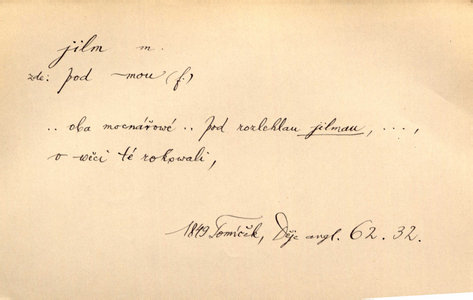 jilm m.
zde: pod –mou (f.)
.. oba mocnářové .. pod rozlehlau jilmau, ...,
o wěci té rokowali,
1849 Tomíček, Děje angl. 62. 32.